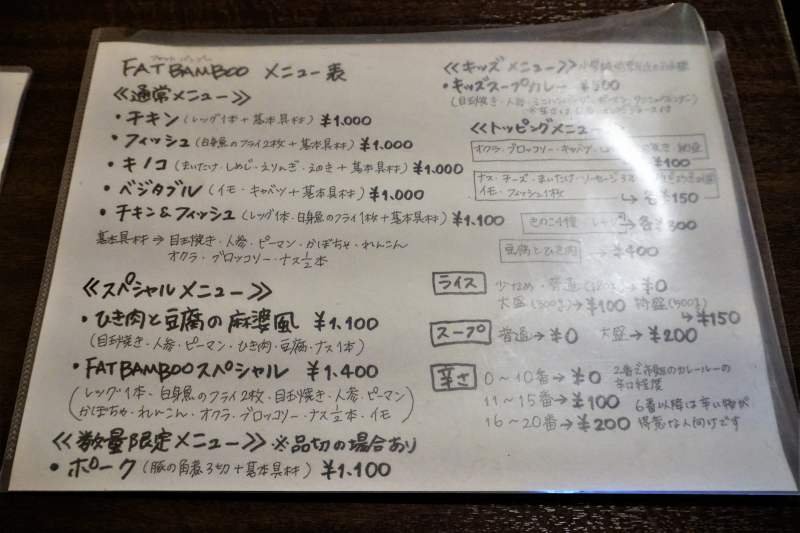 ファット バンブー
FATBAMBOO メニュー表
≪通常メニュー≫
・チキン（レッグ1本＋基本具材）¥1,000
・フィッシュ（白身魚のフライ2枚＋基本具材）¥1,000
・キノコ（まいたけ・しめじ・えりんぎ・えのき＋基本具材）¥1,000
・ベジタブル（イモ・キャベツ＋基本具材）¥1,000
・チキン&フィッシュ（レッグ1本・白身魚のフライ1枚＋基本具材）¥1,100
基本具材⇒目玉焼き・人参・ピーマン・かぼちゃ・れんこん
オクラ・ブロッコリー・ナス1/2本
≪スペシャルメニュー≫
・ひき肉と豆腐の麻婆風 ¥1,100
（目玉焼き・人参・ピーマン・ひき肉・豆腐・ナス1本）
・FATBAMBOOスペシャル ¥1,400
（レッグ1本、白身魚のフライ2枚・目玉焼き・人参・ピーマン
かぼちゃ・れんこん・オクラ・ブロッコリー・ナス1/2本・イモ）
≪数量限定メニュー≫ ※品切の場合あり
・ポーク（豚の角煮3切＋基本具材）¥1,100
≪キッズメニュー≫
・キッズスープカレー ¥500
（目玉焼き・人参・
≪トッピングメニュー≫
オクラ・ブロッコリー・キャベツ・
¥100
ナス・チーズ・まいたけ・ソーセージ
イモ・フィッシュ1枚
→各¥150
きのこ4種・レッグ →各¥300
豆腐とひき肉 →¥400
ライス 少なめ・普通 →¥0
大盛（300g）→¥100 特盛
→¥150
スープ 普通→¥0 大盛→¥200
辛さ 0〜10番→¥0 2番で市販のカレールーの
辛口程度
11〜15番→¥100 6番以降は辛い物が
16〜20番→¥200 得意な人向けです